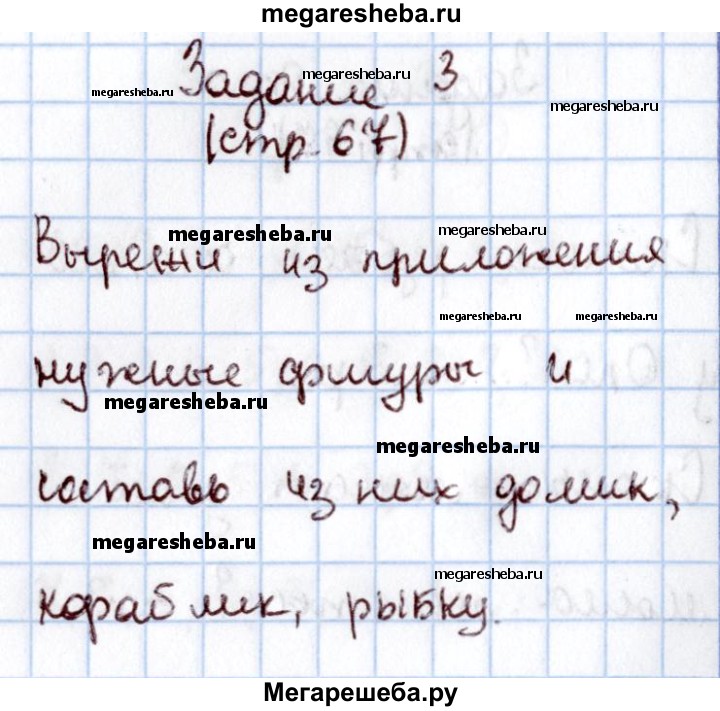 megaresheba.ru
Задание 3
megaresheba.ru
megaresheba.ru
megaresheba.ru
(стр. 67)
megaresheba.ru
megaresheba.ru
Вырежи из приложения
megaresheba.ru
megaresheba.ru
нужные фигуры и
megaresheba.ru
megaresheba.ru
составь из них домик,
megaresheba.ru
megaresheba.ru
кораблик, рыбку.
Мегарешеба.ру